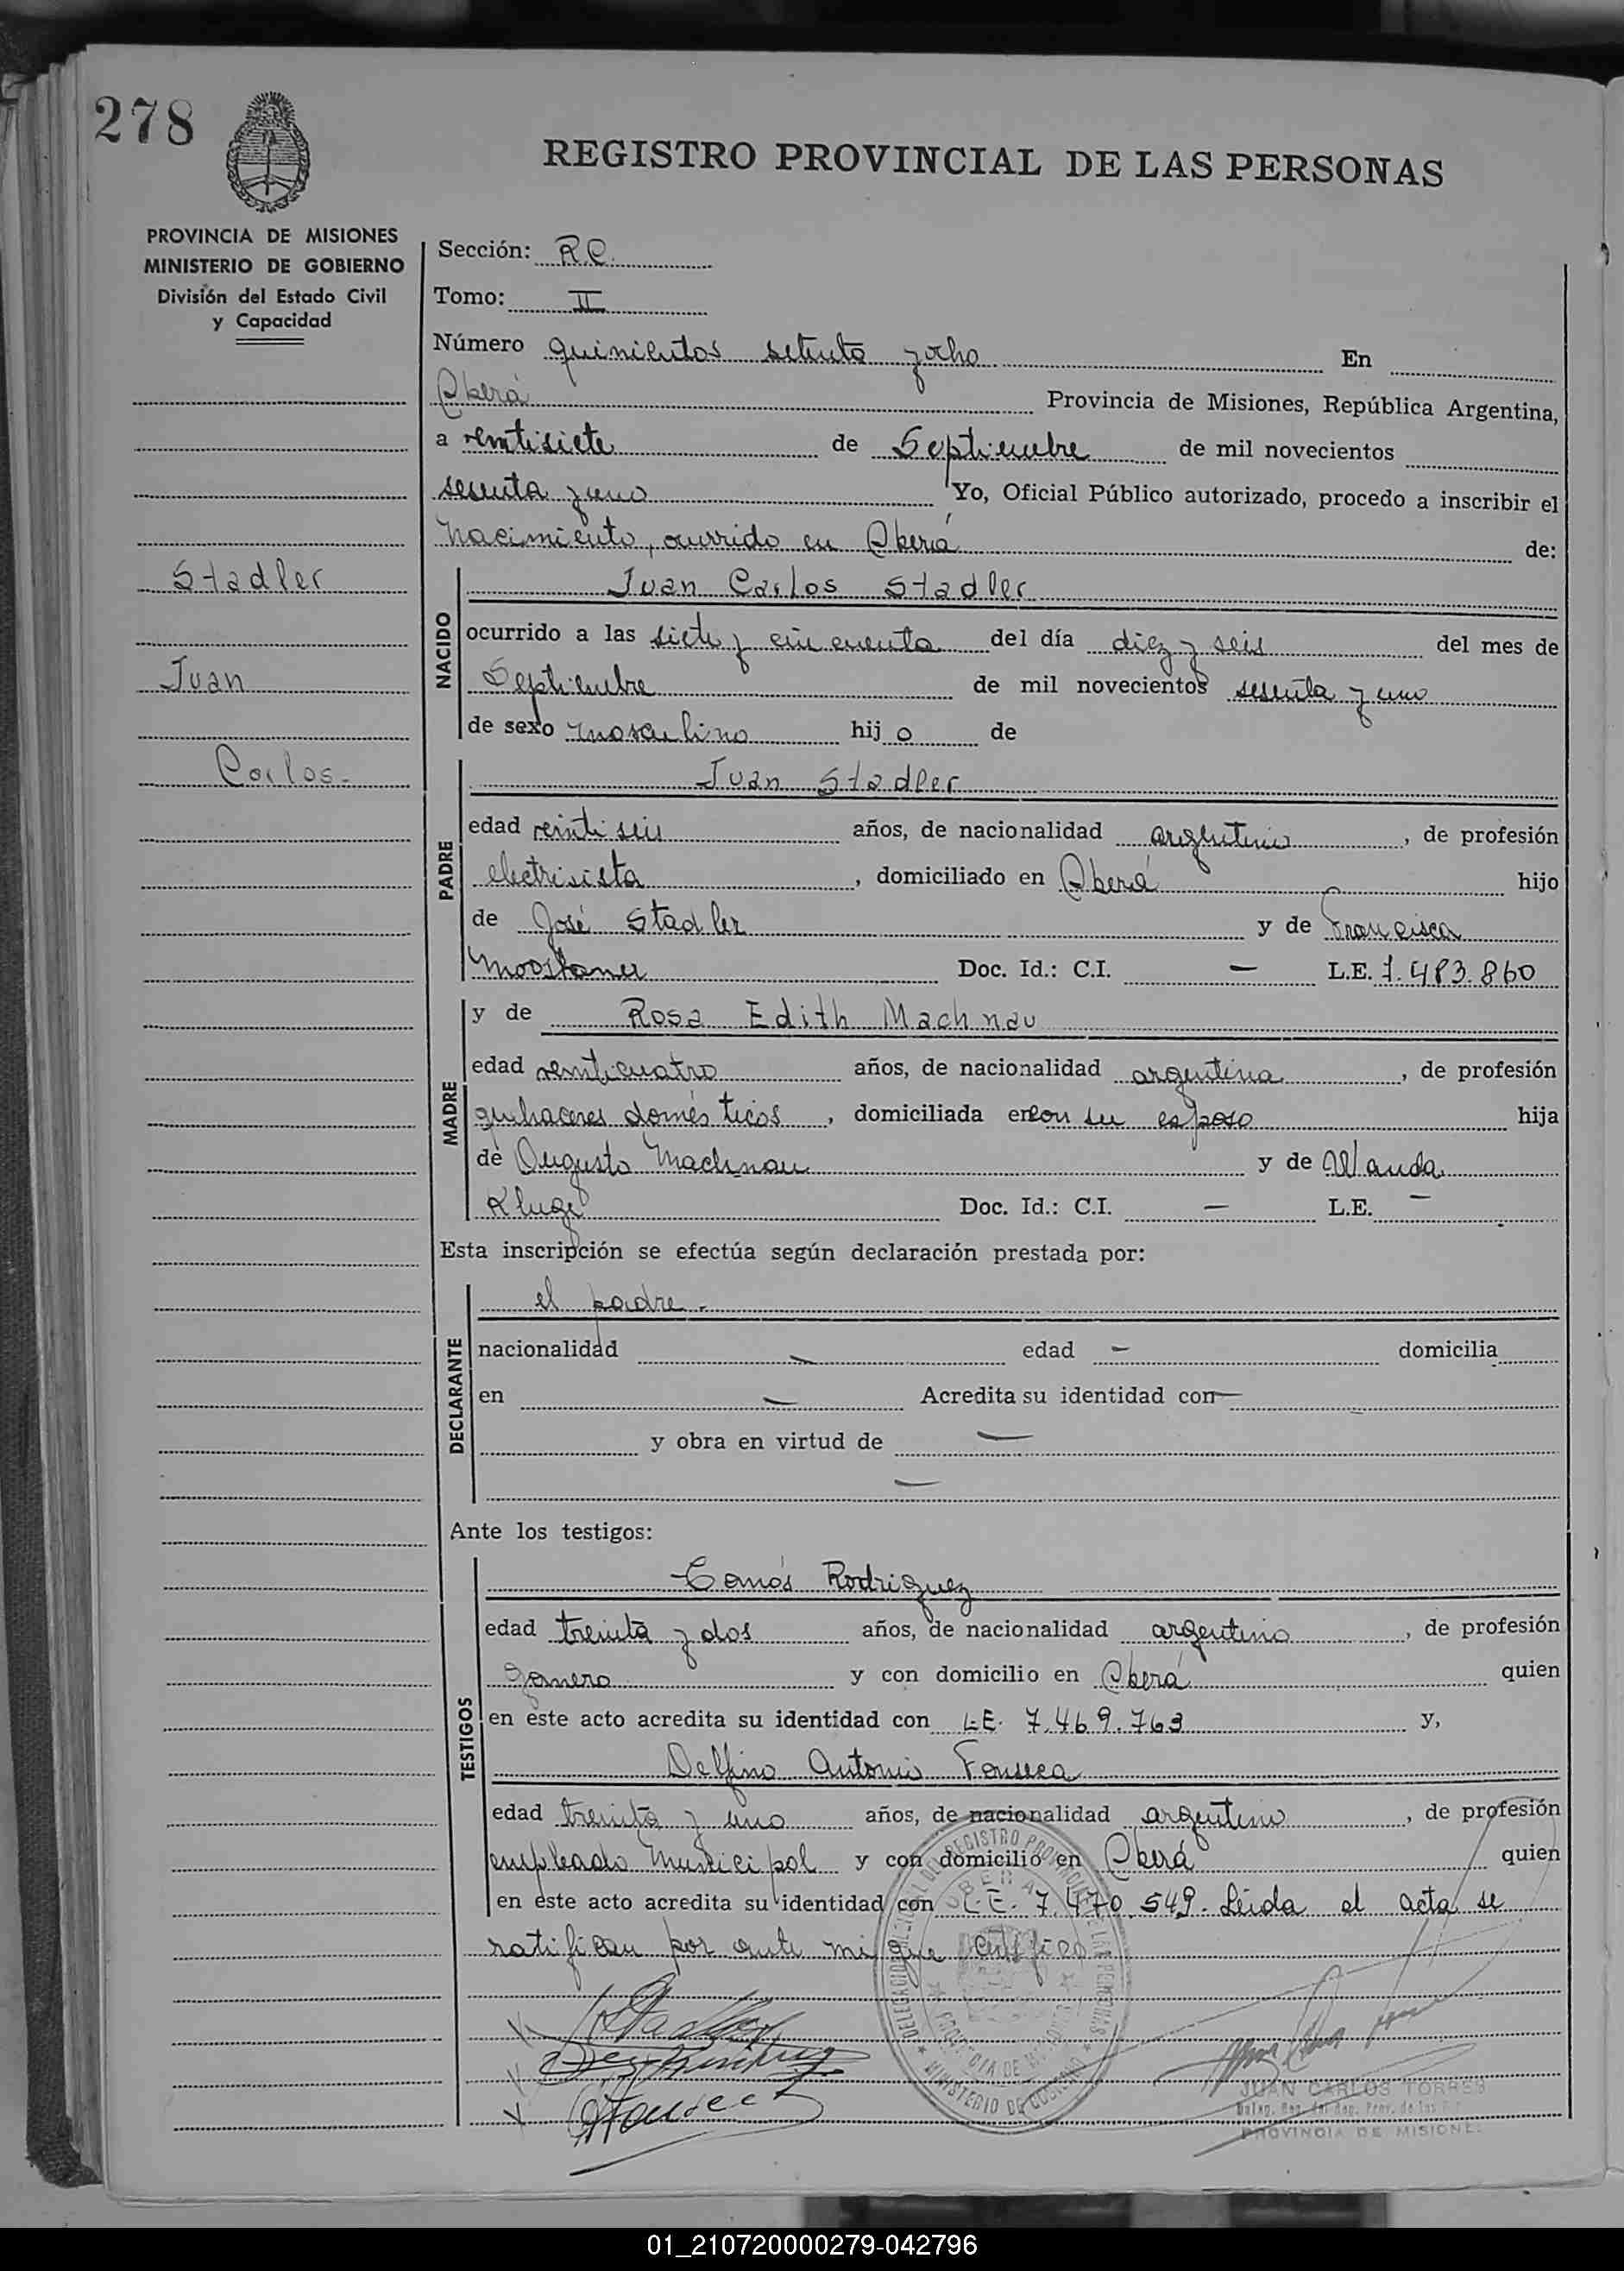 278
REGISTRO PROVINCIAL DE LAS PERSONAS
PROVINCIA DE MISIONES
MINISTERIO DE GOBIERNO
División del Estado Civil
y Capacidad
Sección: R.C.
Tomo: II
Número quinientos setenta y ocho En
Oberá Provincia de Misiones, República Argentina,
a veintisiete de Septiembre de mil novecientos
sesenta y uno Yo, Oficial Público autorizado, procedo a inscribir el
nacimiento, ocurrido en Oberá de:
Stadler
Juan
Carlos.-
NACIDO
Juan Carlos Stadler
ocurrido a las siete y cincuenta del día diez y seis del mes de
Septiembre de mil novecientos sesenta y uno
de sexo masculino hijo de
PADRE
Juan Stadler
edad veintiseis años, de nacionalidad argentino, de profesión
electricista, domiciliado en Oberá hijo
de José Stadler y de Francisca
Doc. Id.: C.I. — L.E. 7.483.860
MADRE
y de Rosa Edith Machnau
edad veinticuatro años, de nacionalidad argentina, de profesión
quehaceres domésticos, domiciliada en con su esposo hija
de Augusto Machnau y de Wanda
Kluge Doc. Id.: C.I. — L.E. —
Esta inscripción se efectúa según declaración prestada por:
DECLARANTE
el padre.-
nacionalidad — edad — domicilia
en — Acredita su identidad con —
y obra en virtud de —
—
Ante los testigos:
TESTIGOS
Tomás Rodriguez
edad treinta y dos años, de nacionalidad argentino, de profesión
gomero y con domicilio en Oberá quien
en este acto acredita su identidad con L.E. 7.469.763 y,
Delfino Antonio Fonseca
edad treinta y uno años, de nacionalidad argentino, de profesión
empleado Municipal y con domicilio en Oberá quien
en este acto acredita su identidad con L.E. 7.470.549. Leida el acta se
ratifican por ante mi que certifico
DELEGACION DEL REGISTRO PROVINCIAL DE LAS PERSONAS
OBERA
PROVINCIA DE MISIONES
MINISTERIO DE GOBIERNO
JStadler
Fonseca
JUAN CARLOS TORRES
PROVINCIA DE MISIONES
01_210720000279-042796